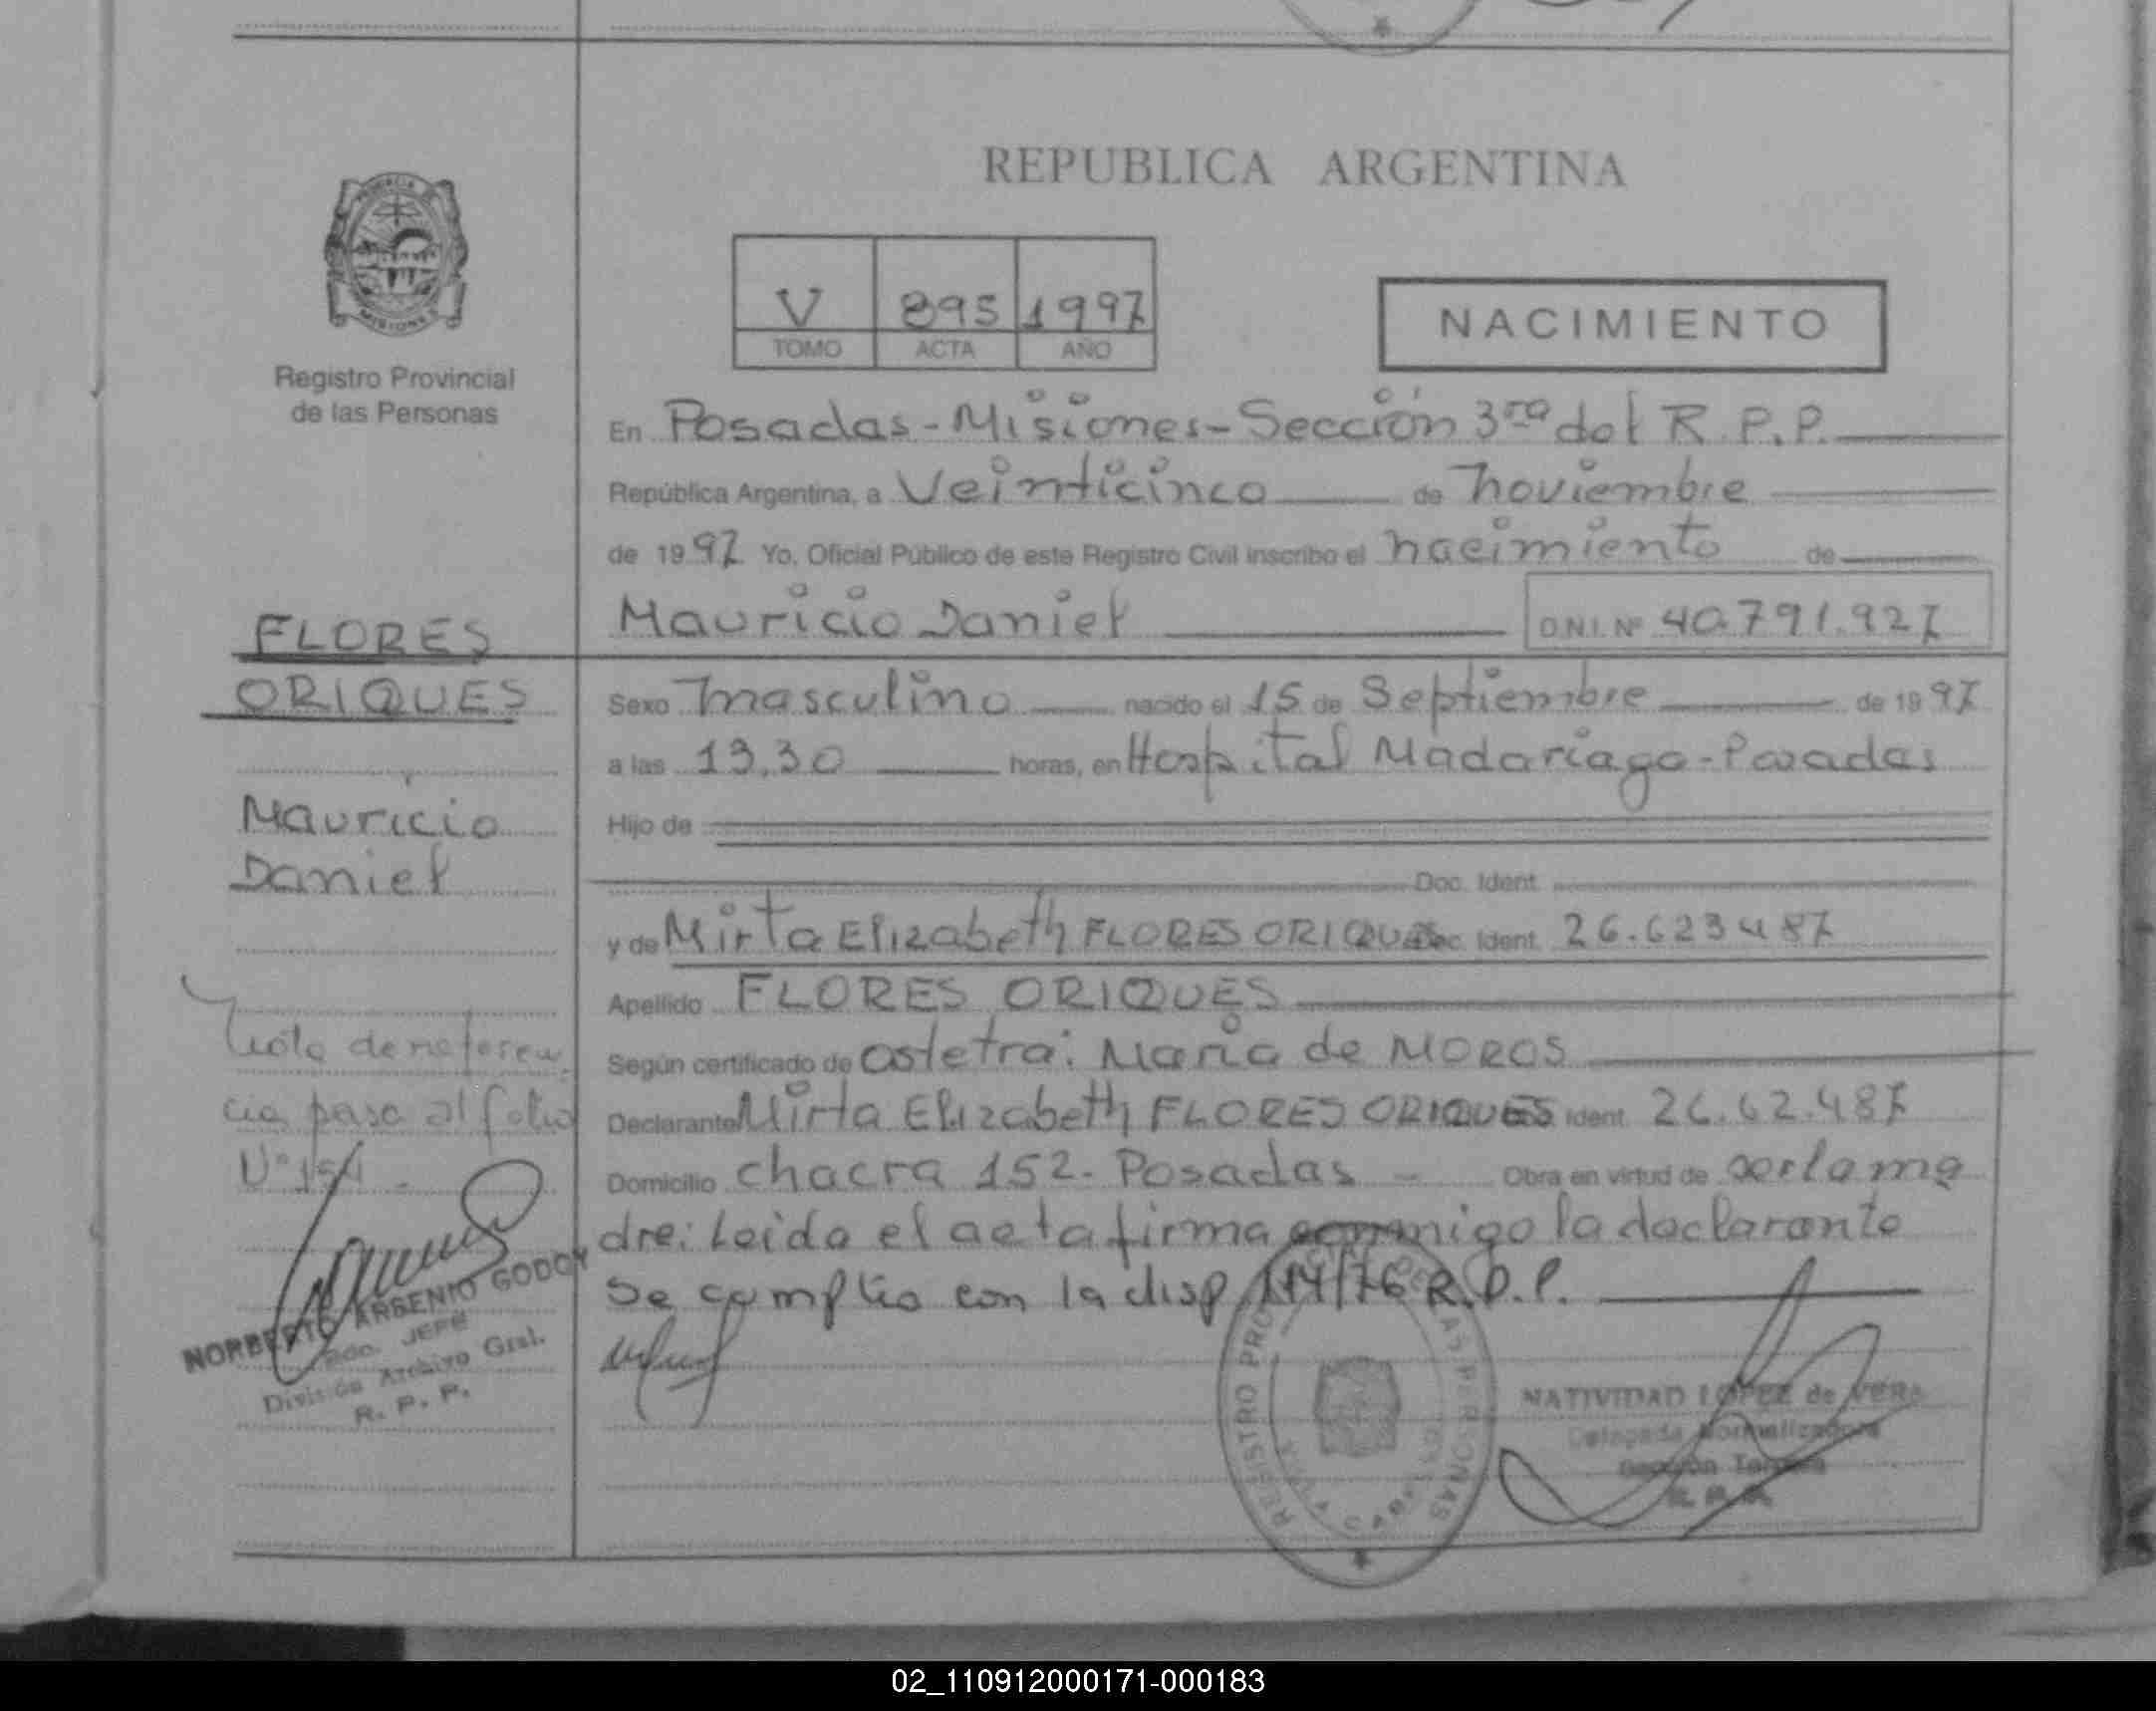 REPUBLICA ARGENTINA
PROVINCIA DE
MISIONES
Registro Provincial
de las Personas
V 895 1997
TOMO ACTA AÑO
NACIMIENTO
En Posadas - Misiones - Sección 3ra del R.P.P.
República Argentina, a Veinticinco de noviembre
de 1997 Yo, Oficial Público de este Registro Civil inscribo el nacimiento de
Mauricio Daniel D.N.I. Nº 40.791.927
FLORES
ORIQUES
Mauricio
Daniel
Sexo masculino nacido el 15 de Septiembre de 1997
a las 13,30 horas, en Hospital Madariaga - Posadas
Hijo de
Doc. Ident.
y de Mirta Elizabeth FLORES ORIQUES Doc. Ident. 26.623487
Apellido FLORES ORIQUES
Según certificado de ostetra: Maria de MOROS
Declarante Mirta Elizabeth FLORES ORIQUES Ident. 26.62.487
Domicilio chacra 152 - Posadas - Obra en virtud de ser la ma
dre: Leida el acta firma conmigo la declarante
Se cumplio con la disp 114/76 R.P.P.
Nota de referen
cia pasa al folio
Nº 154.
NORBERTO ARSENIO GODOY
Jefe
División Archivo Gral.
R. P. P.
REGISTRO PROVINCIAL DE LAS PERSONAS
NATIVIDAD LOPEZ de VERA
Delegada Normalizadora
Sección Tercera
R. P. P.
02_110912000171-000183